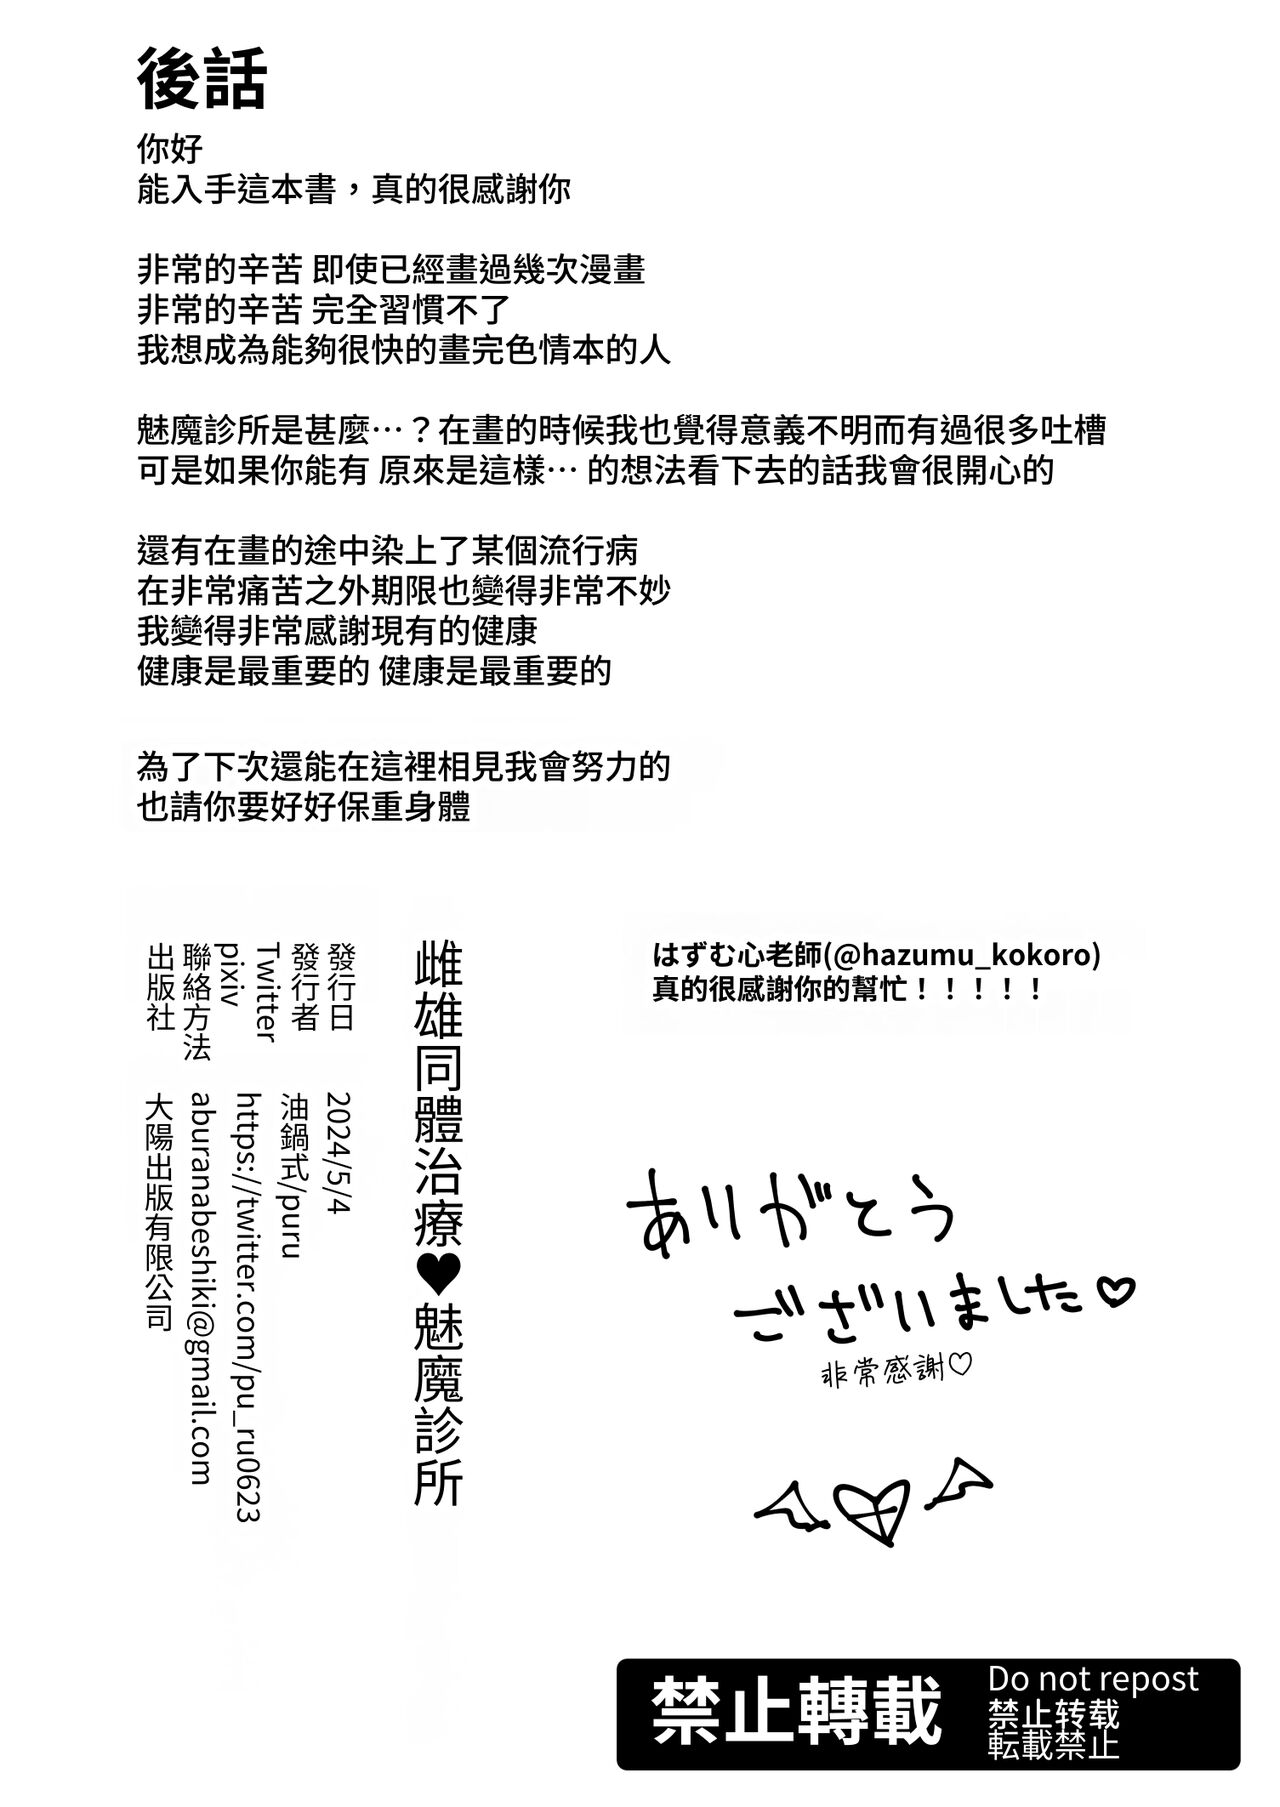 後話
你好
能入手這本書，真的很感謝你
非常的辛苦 即使已經畫過幾次漫畫
非常的辛苦 完全習慣不了
我想成為能夠很快的畫完色情本的人
魅魔診所是甚麼…？在畫的時候我也覺得意義不明而有過很多吐槽
可是如果你能有 原來是這樣… 的想法看下去的話我會很開心的
還有在畫的途中染上了某個流行病
在非常痛苦之外期限也變得非常不妙
我變得非常感謝現有的健康
健康是最重要的 健康是最重要的
為了下次還能在這裡相見我會努力的
也請你要好好保重身體
はずむ心老師(@hazumu_kokoro)
真的很感謝你的幫忙！！！！！
雌雄同體治療♥魅魔診所
發行日 2024/5/4
發行者 油鍋式/puru
Twitter https://twitter.com/pu_ru0623
pixiv
聯絡方法 aburanabeshiki@gmail.com
出版社 大陽出版有限公司
ありがとう
ございました♡
非常感謝♡
禁止轉載
Do not repost
禁止转载
転載禁止